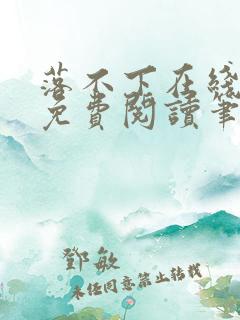 落不下在綫
免費閱讀筆
鄧敏
未经同意禁止转载